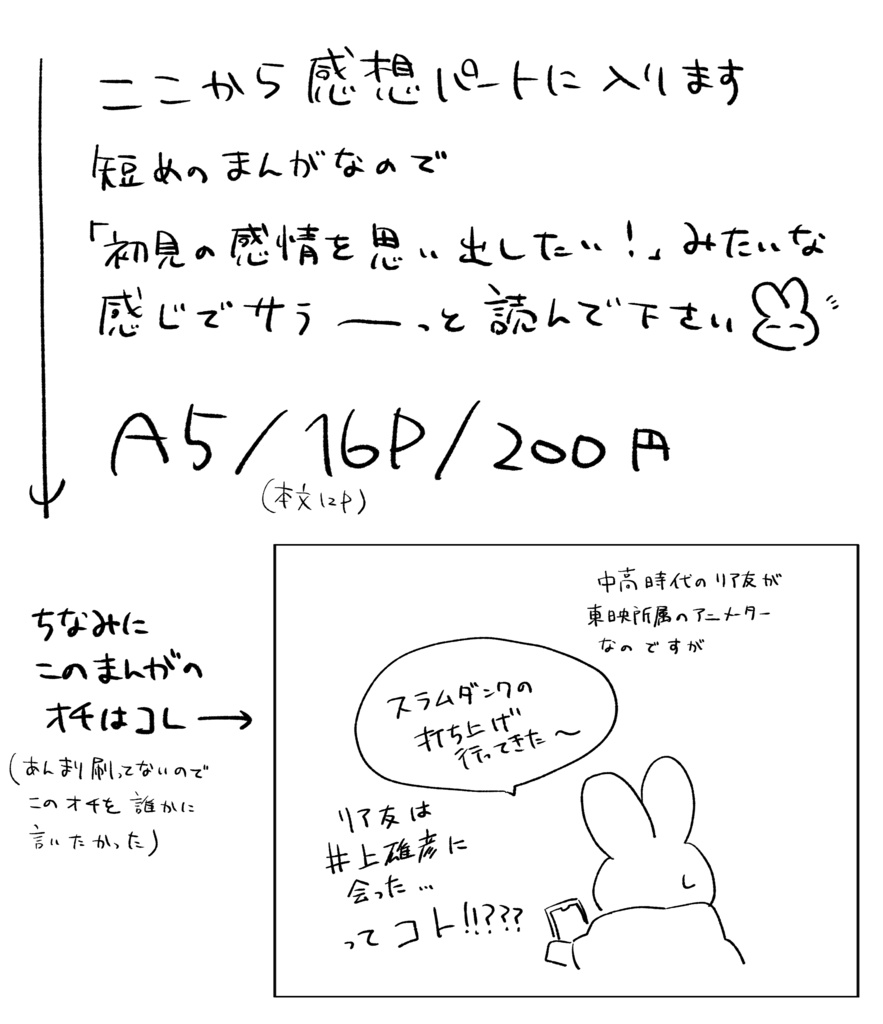 ここから感想パートに入ります
短めのまんがなので
「初見の感情を思い出したい!」みたいな
感じでサラーーっと読んで下さい
A5/16P/200円
(本文12P)
ちなみに
このまんがの
オチはコレ→
(あんまり刷ってないので
このオチを誰かに
言いたかった)
中高時代のリア友が
東映所属のアニメーター
なのですが
スラムダンクの
打ち上げ
行ってきた〜
リア友は
井上雄彦に
会った…
ってコト!!???